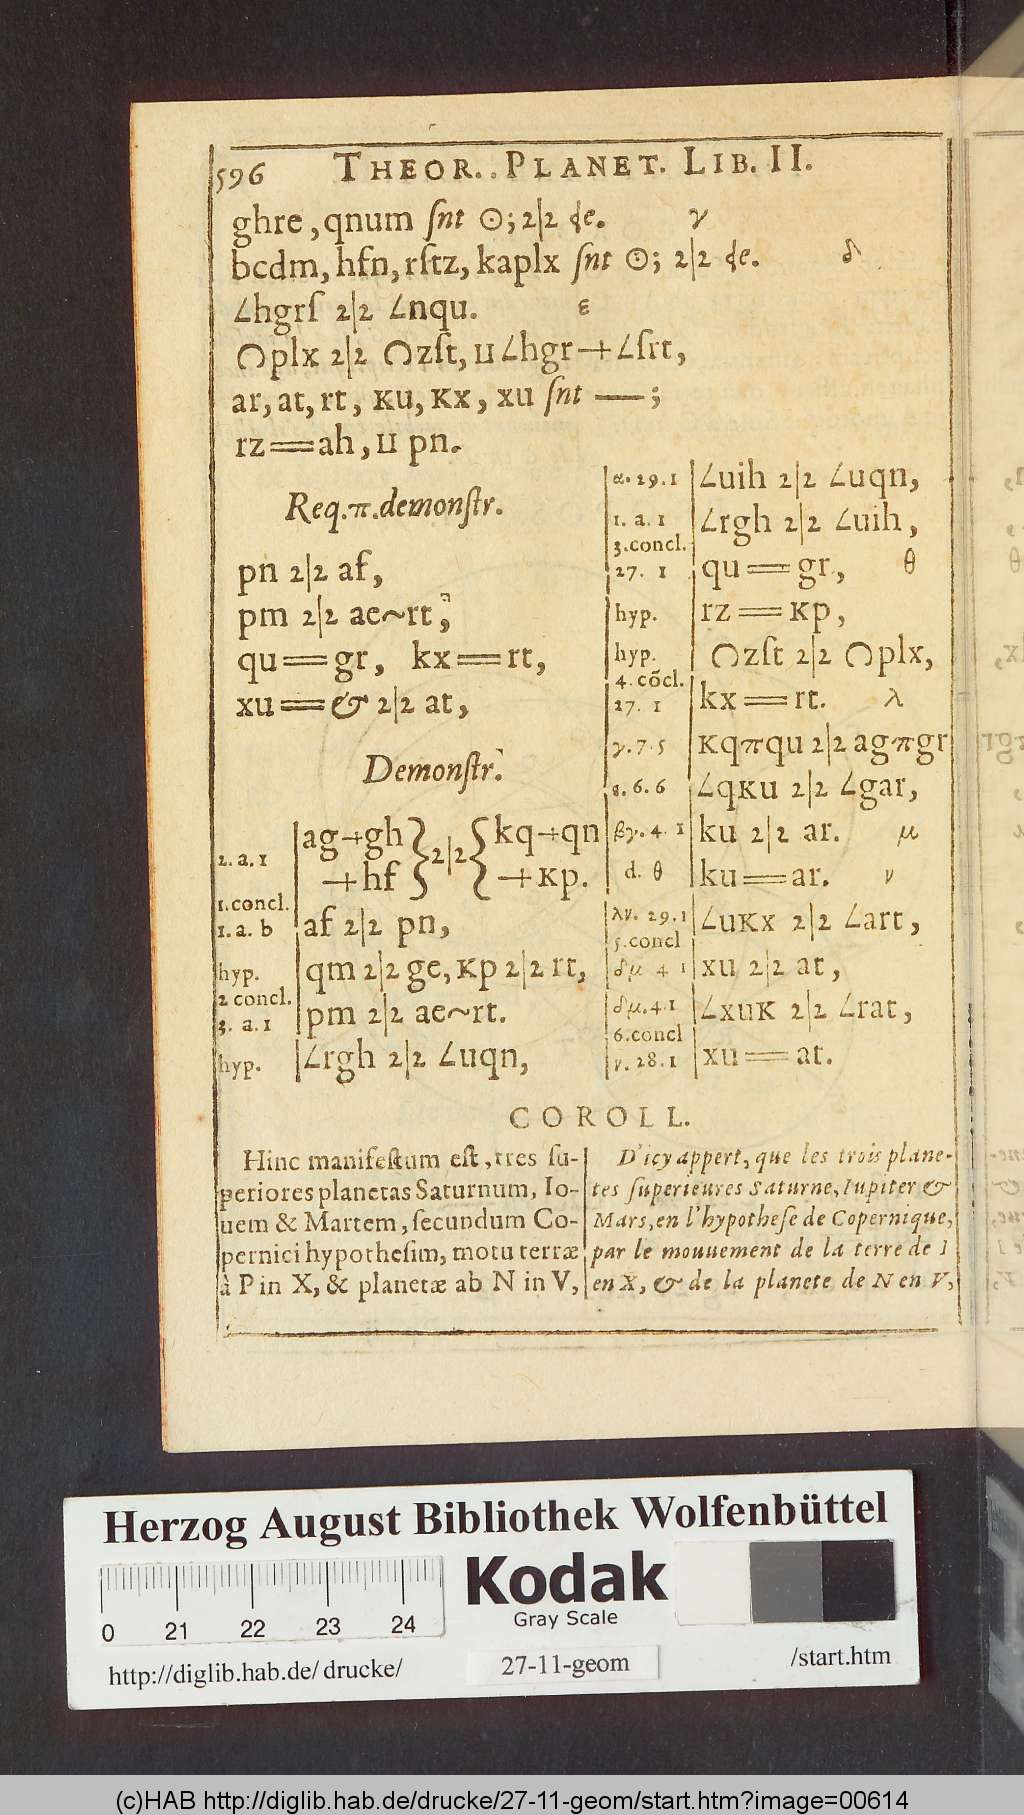 596 THEOR. PLANET. LIB. II.
ghre, qnum ſnt ⊙; 2|2 ɖe. γ
bcdm, hfn, rſtz, kaplx ſnt ⊙; 2|2 ɖe. δ
∠hgrſ 2|2 ∠nqu. ε
⌒plx 2|2 ⌒zſt, ⊔ ∠hgr+∠ſrt,
ar, at, rt, κu, κx, xu ſnt —;
rz==ah, ⊔ pn.
Req. π. demonſtr.
pn 2|2 af,
pm 2|2 ae~rt,
qu==gr, kx==rt,
xu==& 2|2 at,
Demonſtr.
2. a. 1 | ag+gh } 2|2 { kq+qn
+hf } { +κp.
1. concl.
1. a. b | af 2|2 pn,
hyp. | qm 2|2 ge, κp 2|2 rt,
2 concl.
3. a. 1 | pm 2|2 ae~rt.
hyp. | ∠rgh 2|2 ∠uqn,
α. 29. 1 | ∠uih 2|2 ∠uqn,
1. a. 1 | ∠rgh 2|2 ∠uih,
3. concl.
27. 1 | qu==gr, θ
hyp. | rz==κp,
hyp. | ⌒zſt 2|2 ⌒plx,
4. cõcl.
27. 1 | kx==rt. λ
γ. 7. 5 | κqπqu 2|2 agπgr
ε. 6. 6 | ∠qκu 2|2 ∠gar,
βγ. 4. 1 | ku 2|2 ar. μ
d. θ | ku==ar. ν
λν. 29. 1 | ∠uκx 2|2 ∠art,
5. concl
δμ 4 1 | xu 2|2 at,
δμ. 4. 1 | ∠xuκ 2|2 ∠rat,
6. concl
ν. 28. 1 | xu==at.
COROLL.
Hinc manifeſtum eſt, tres ſu-
periores planetas Saturnum, Io-
uem & Martem, ſecundum Co-
pernici hypotheſim, motu terræ
à P in X, & planetæ ab N in V,
D'icy appert, que les trois plane-
tes ſuperieures Saturne, Iupiter &
Mars, en l'hypotheſe de Copernique,
par le mouuement de la terre de 1
en X, & de la planete de N en V,
Herzog August Bibliothek Wolfenbüttel
0 21 22 23 24
Kodak
Gray Scale
http://diglib.hab.de/drucke/
27-11-geom
/start.htm
(c)HAB http://diglib.hab.de/drucke/27-11-geom/start.htm?image=00614